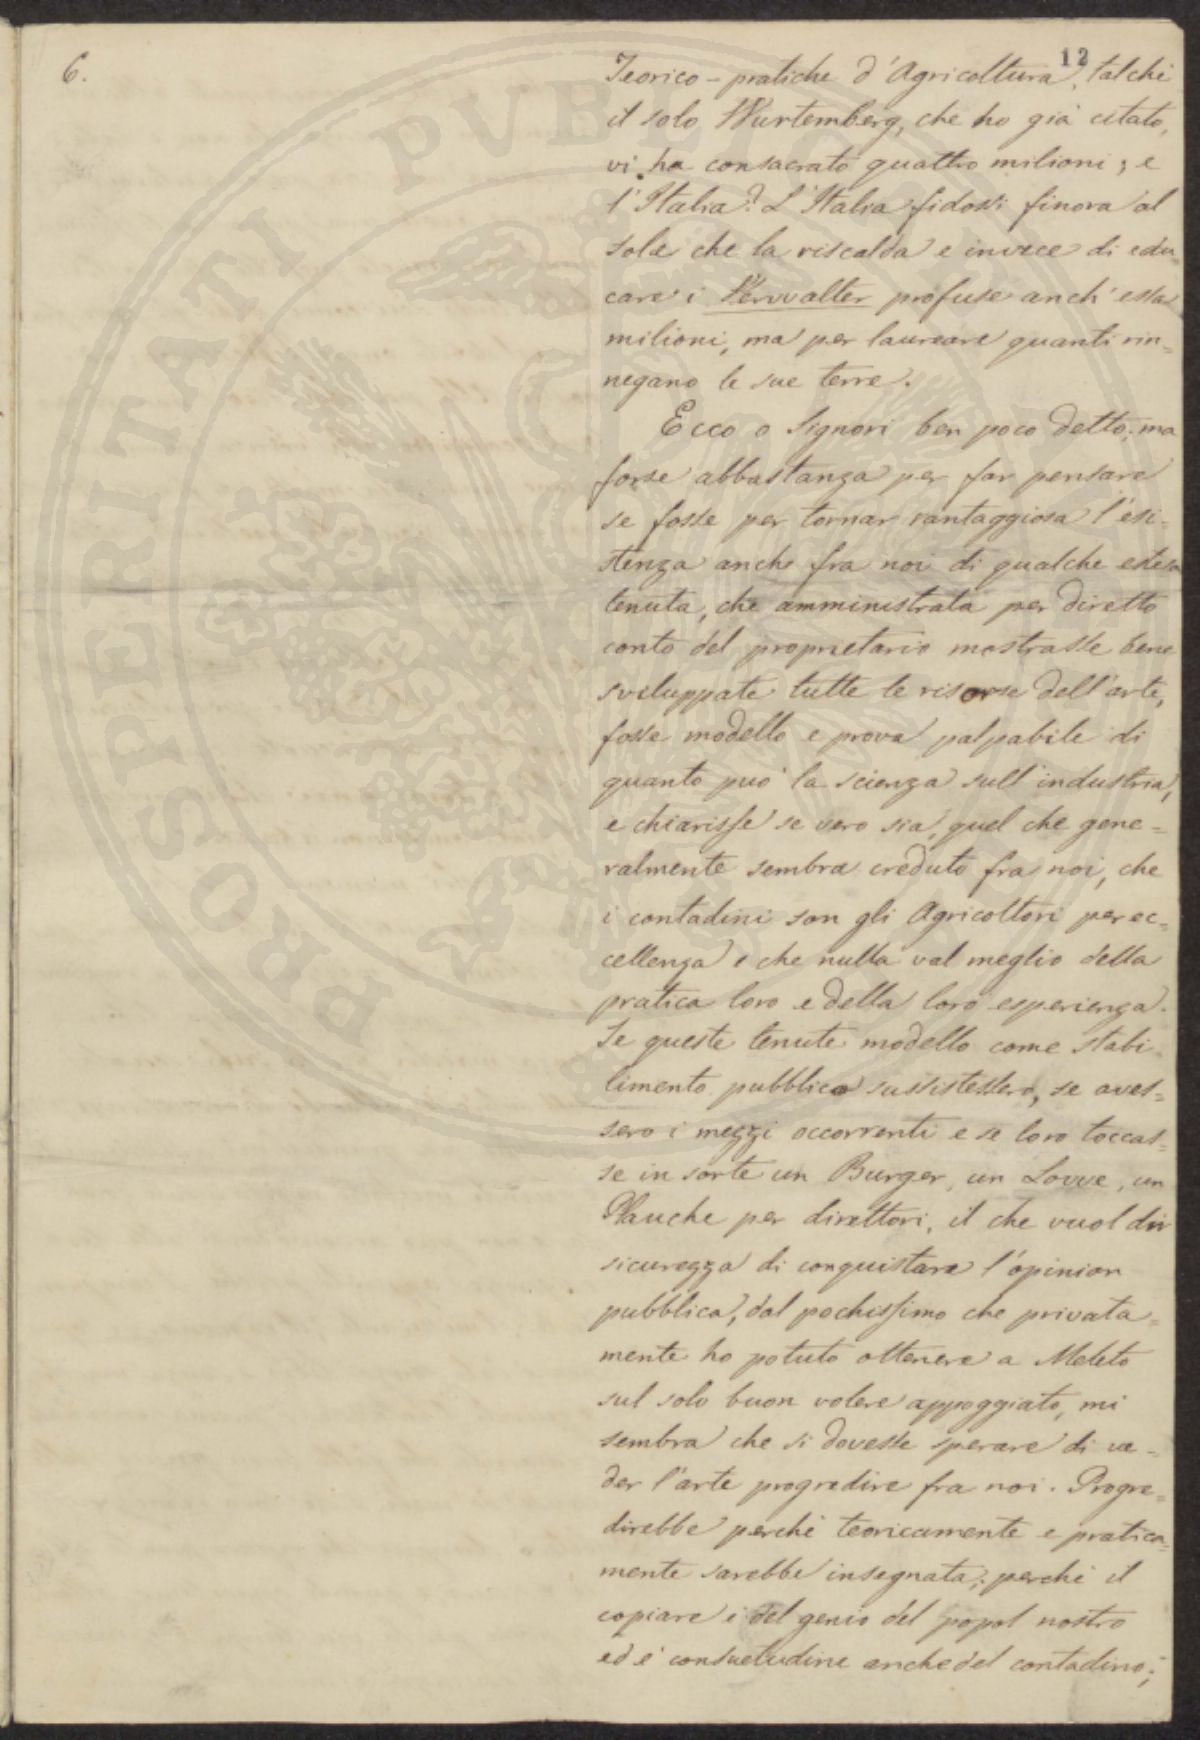 6.
12
Teorico-pratiche d'Agricoltura, talchè
il solo Wurtemberg, che ho già citato,
vi ha consacrato quattro milioni; e
l'Italia? L'Italia fidossi finora al
sole che la riscalda e invece di edu-
care i Vervvalter profuse anch'essa
milioni, ma per laureare quanti rin=
negano le sue terre.
Ecco o Signori ben poco detto; ma
forse abbastanza per far pensare
se fosse per tornar vantaggiosa l'esi-
stenza anche fra noi di qualche estesa
tenuta, che amministrata per diretto
conto del proprietario mostrasse bene
sviluppate tutte le risorse dell'arte,
fosse modello e prova palpabile di
quanto può la scienza sull'industria,
e chiarisse se vero sia, quel che gene=
ralmente sembra creduto fra noi, che
i contadini son gli Agricoltori per ec=
cellenza e che nulla val meglio della
pratica loro e della loro esperienza.
Se queste tenute modello come stabi-
limento pubblico sussistessero, se aves=
sero i mezzi occorrenti e se loro toccas=
se in sorte un Burger, un Lovve, un
Plauche per direttori, il che vuol dir
sicurezza di conquistare l'opinion
pubblica, dal pochissimo che privata=
mente ho potuto ottenere a Meleto
sul solo buon volere appoggiato, mi
sembra che si dovesse sperare di ve=
der l'arte progredire fra noi. Progre=
direbbe perchè teoricamente e pratica=
mente sarebbe insegnata; perchè il
copiare è del genio del popol nostro
ed è consuetudine anche del contadino;
PROSPERITATI PUBLICAE